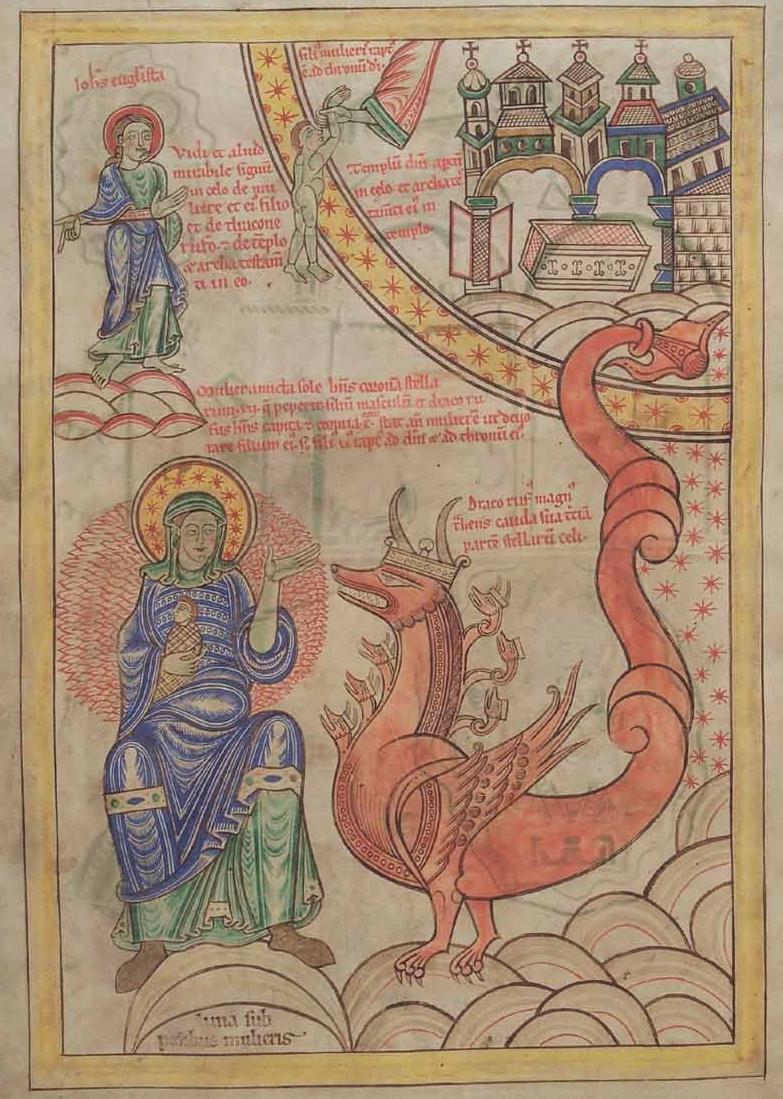 Ioh̄s euḡlista
Vidi et aliud
mirabile signum
in celo de mu
liere et ei filio
et de dracone
rufo. et de tēplo
et archa testam̄
ti in eo.
fili mulieris rapt
ē ad thronū dī.
Templū dn̄i aptū
in celo et archa te
stam̄ti ei in
templo.
Mulier amicta sole hn̄s coronā stella
rum. xii. q̄ peperit filiū masculū. et draco ru
fus hn̄s capita et cornua stat an̄ mulierē ut deuo
raret filium ei. filius rapt ad dn̄m et ad thronū ei.
Draco rufus magn
trahens cauda sua tciā
partē stellarū celi.
luna sub
pedibus mulieris